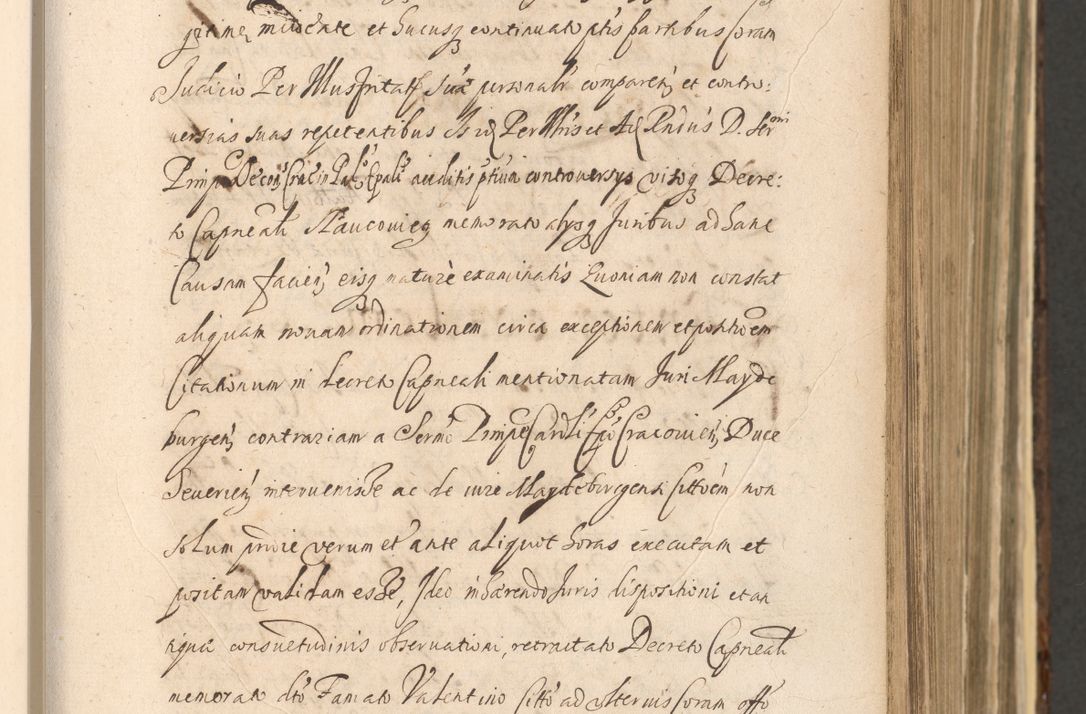 et hucusq continuato ptis partibus coram
Judicio Per Illus personalr comparen et contro:
versias suas repetentibus Per Illris et Ad Rndus D.
auditis ptium controversys visoq Decre:
to Capneali memorato alysq Juribus ad hanc
Causam facien eisq mature examinatis Quoniam non constat
aliquam novam ordinationem circa exceptionem et positioem
Citationum in decreto Capneali mentionatam Juri Mayde
burgen contrariam a Sermo Cracovien Duce
Severien intervenisse ac de iure Maydeburgensi Cittoem non
solum pridie verum et ante aliquot horas executam et
positam validam esse, Ideo inhaerendo Juris dispositioni et an
tiquae consuetudinis observationi, retractato Decreto Capneali
memorato dto Famato Valentino Citto ad ulterius coram offo